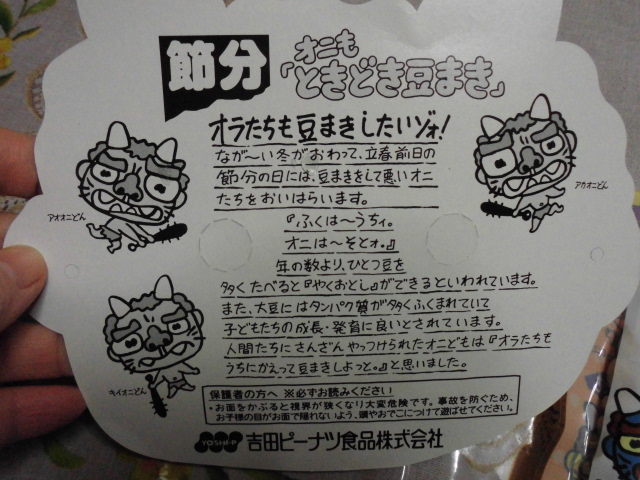 節分
オニも
「ときどき豆まき」
オラたちも豆まきしたいゾォ!
なが〜い冬がおわって、立春前日の
節分の日には、豆まきをして悪いオニ
たちをおいはらいます。
『ふくは〜うちィ。
オニは〜そとォ。』
年の数より、ひとつ豆を
多くたべると『やくおとし』ができるといわれています。
また、大豆にはタンパク質が多くふくまれていて
子どもたちの成長・発育に良いとされています。
人間たちにさんざんやっつけられたオニどもは『オラたちも
うちにかえって豆まきしよっと。』と思いました。
アオオニどん
アカオニどん
キイオニどん
保護者の方へ ※必ずお読みください
・お面をかぶると視界が狭くなり大変危険です。事故を防ぐため、
お子様の目がお面で隠れないよう、頭やおでこにつけて遊ばせてください。
YOSHI-P 吉田ピーナツ食品株式会社